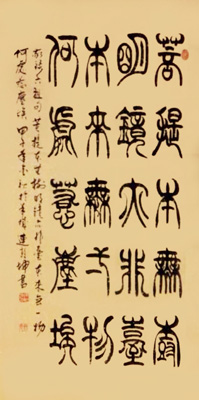 菩提本無樹
明鏡亦非臺
本來無弌物
何處惹塵埃
六祖句菩提本無樹明鏡亦非臺本來無一物
何處惹塵埃甲子年書